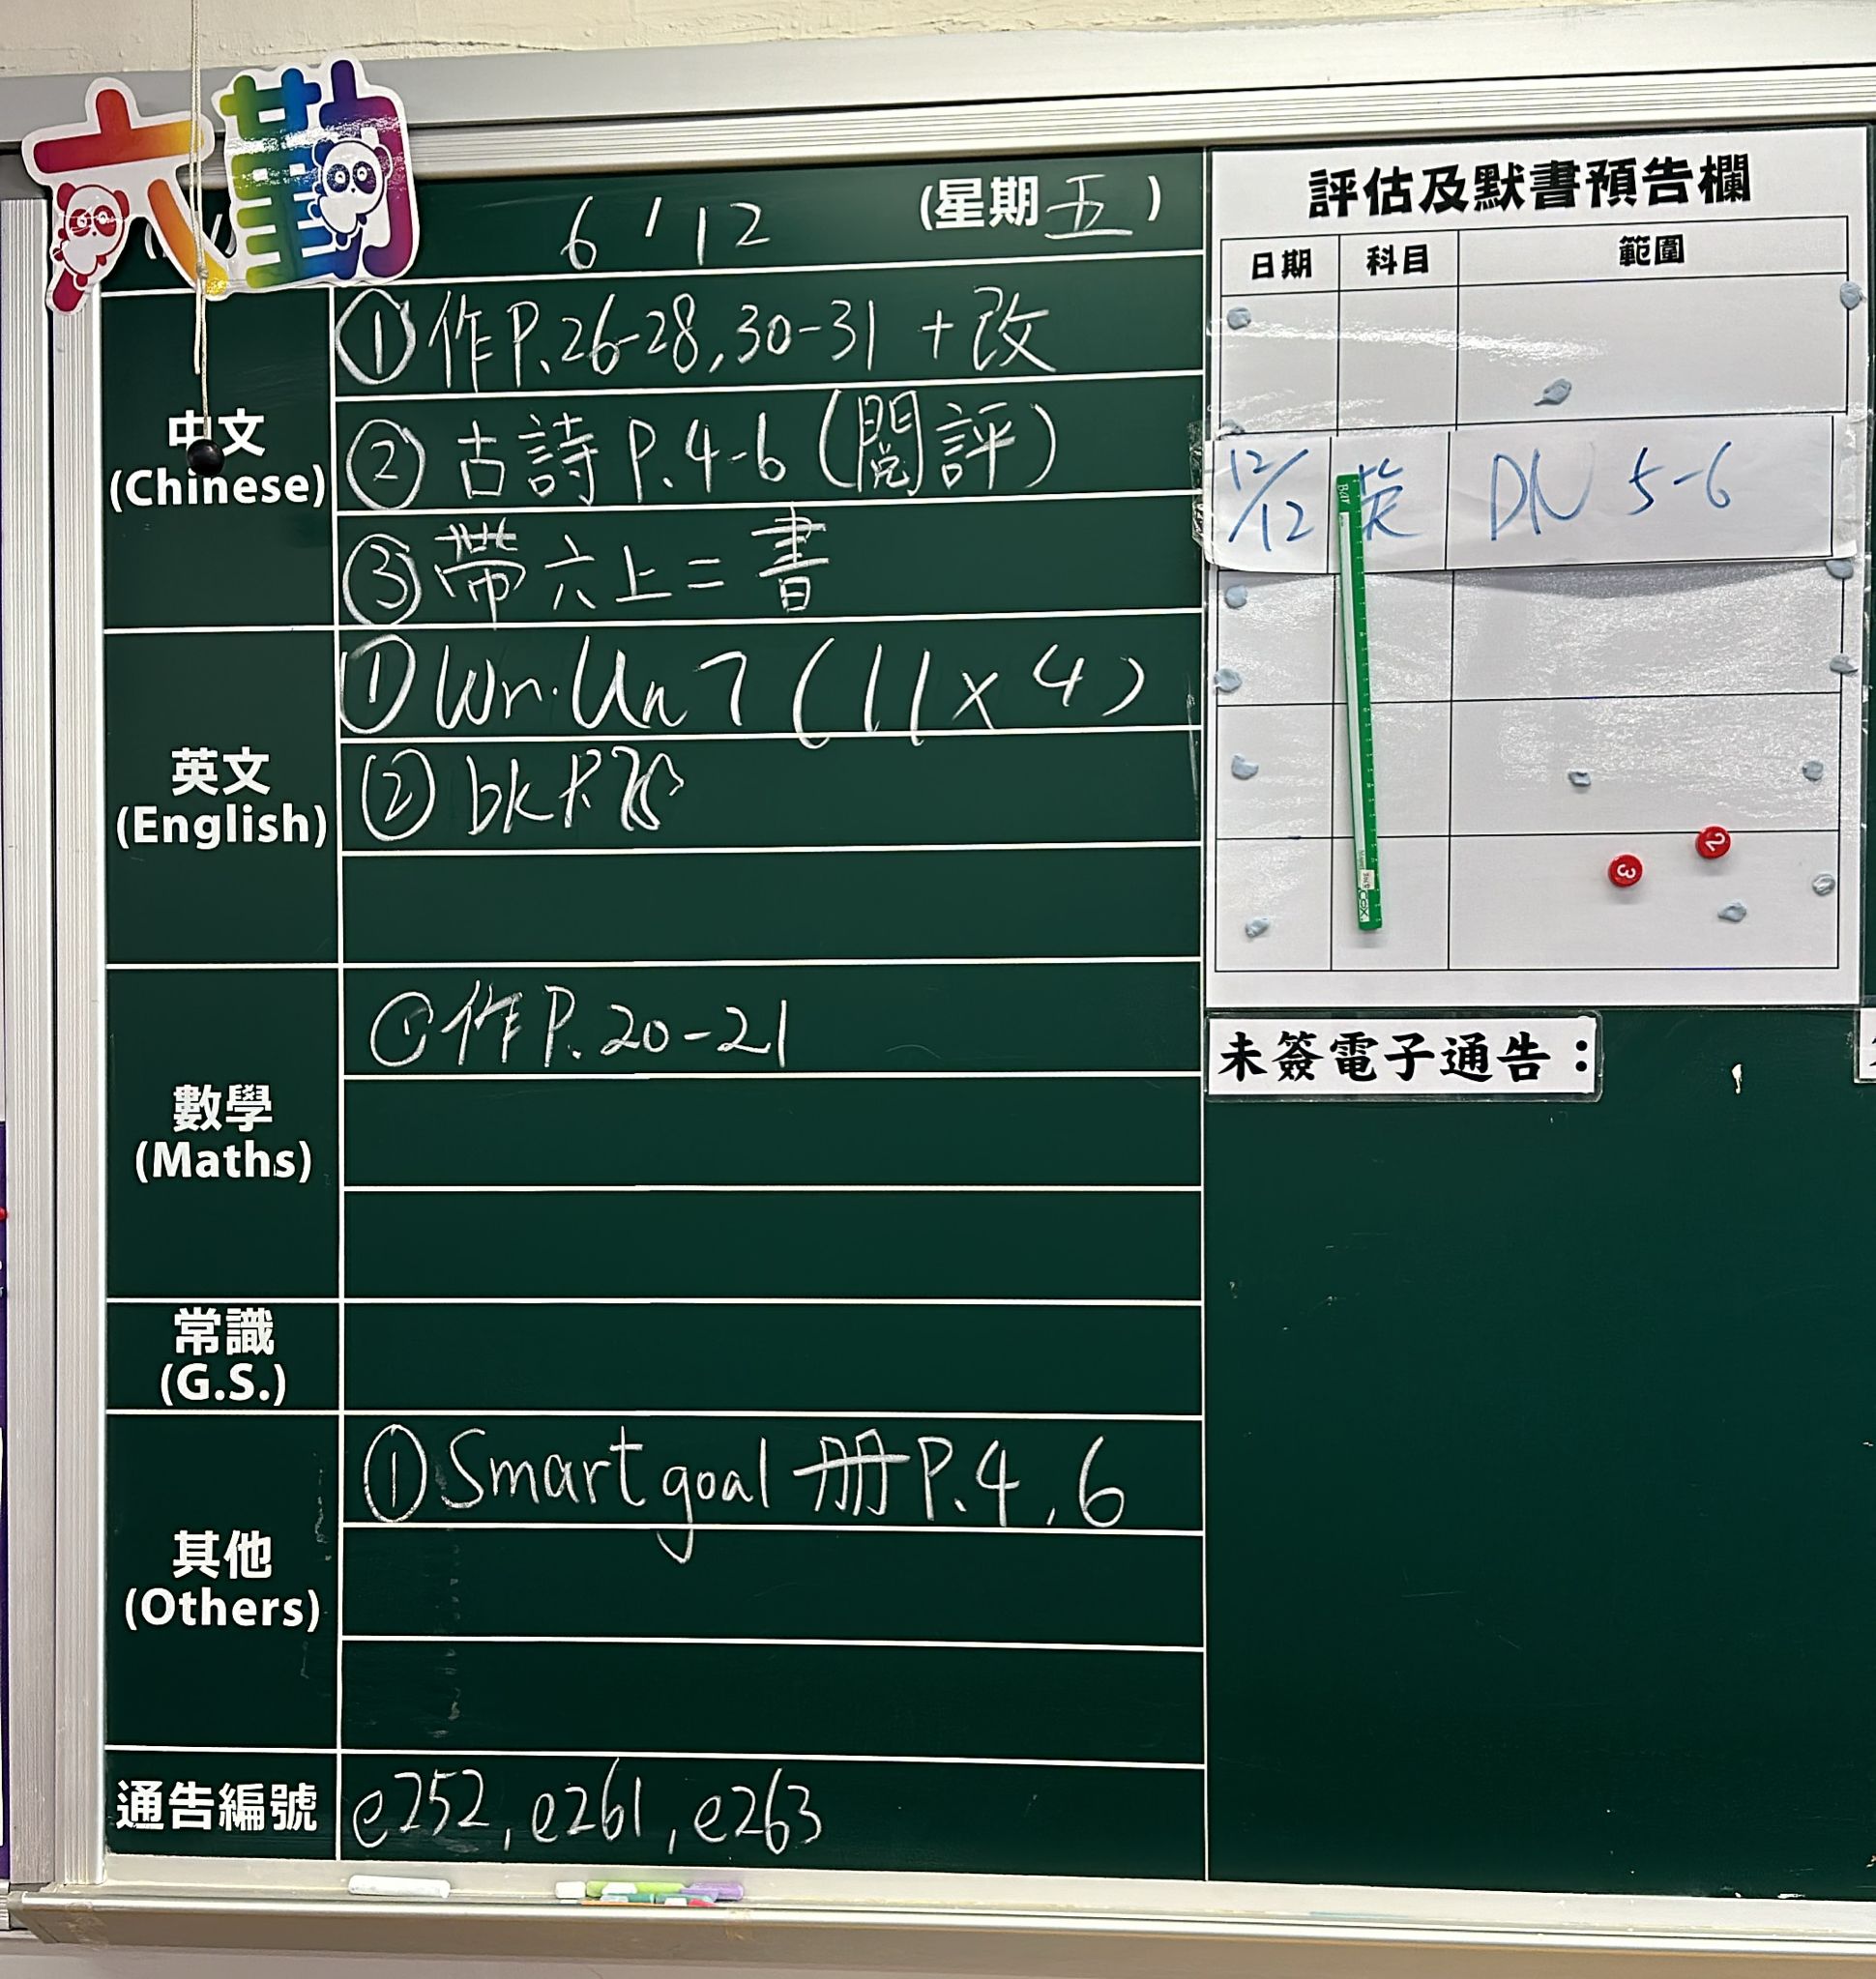 六勤
6/12 (星期五)
中文
(Chinese)
①作P.26-28,30-31+改
②古詩P.4-6(閱評)
③帶六上二書
英文
(English)
①Wr.Un7(11x4)
②bk
數學
(Maths)
①作P.20-21
常識
(G.S.)
其他
(Others)
①Smart goal 册P.4,6
通告編號
e252,e261,e263
評估及默書預告欄
日期 科目 範圍
12/12 英 DN 5-6
3
2
未簽電子通告：